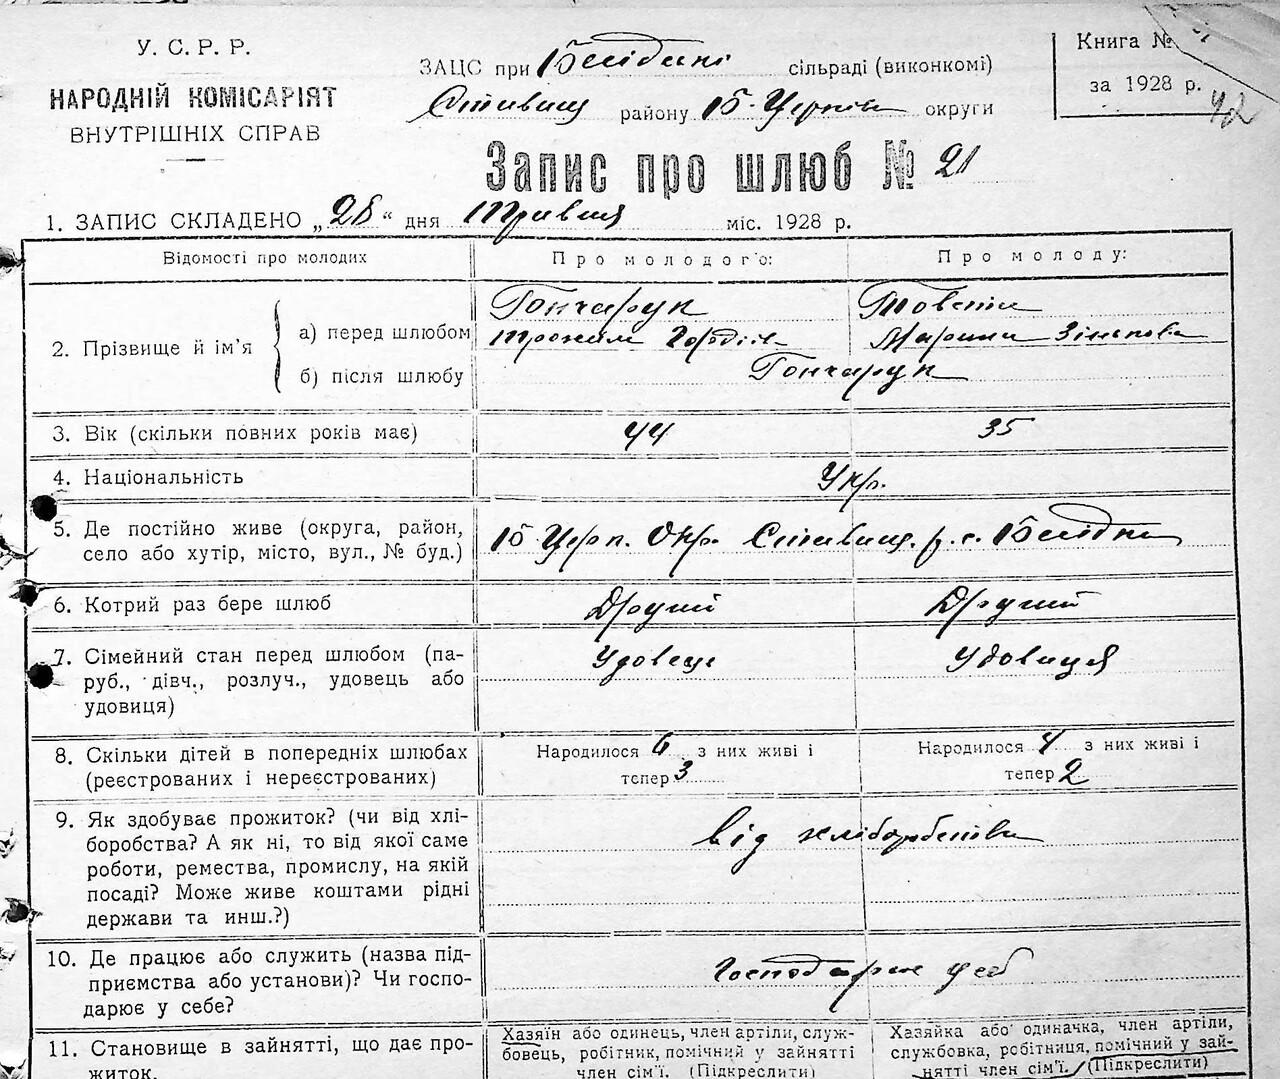 У. С. Р. Р.
НАРОДНІЙ КОМІСАРІЯТ
ВНУТРІШНІХ СПРАВ
ЗАЦС при сільраді (виконкомі)
району Б-Церків округи
Книга №
за 1928 р.
42
Запис про шлюб № 21
1. ЗАПИС СКЛАДЕНО „28“ дня Травня міс. 1928 р.
Відомості про молодих
Про молодого:
Про молоду:
2. Прізвище й ім'я
а) перед шлюбом
б) після шлюбу
Гончарук
Трохим Гордіїв
Марина Зінькова
Гончарук
3. Вік (скільки повних років має)
44
35
4. Національність
Укр.
5. Де постійно живе (округа, район,
село або хутір, місто, вул., № буд.)
Б Церк. Окр. Ставищ. р. с.
6. Котрий раз бере шлюб
Другий
Другий
7. Сімейний стан перед шлюбом (па-
руб., дівч., розлуч., удовець або
удовиця)
Удовець
Удовиця
8. Скільки дітей в попередніх шлюбах
(реєстрованих і нереєстрованих)
Народилося 6 з них живі і
тепер 3
Народилося 4 з них живі і
тепер 2
9. Як здобуває прожиток? (чи від хлі-
боробства? А як ні, то від якої саме
роботи, ремества, промислу, на якій
посаді? Може живе коштами рідні
держави та инш.?)
від хліборобства
10. Де працює або служить (назва під-
приємства або установи)? Чи госпо-
дарює у себе?
11. Становище в зайнятті, що дає про-
житок.
Хазяїн або одинець, член артіли, служ-
бовець, робітник, помічний у зайнятті
член сім'ї. (Підкреслити)
Хазяйка або одиначка, член артіли,
службовка, робітниця, помічний у зай-
нятті член сім'ї. (Підкреслити)